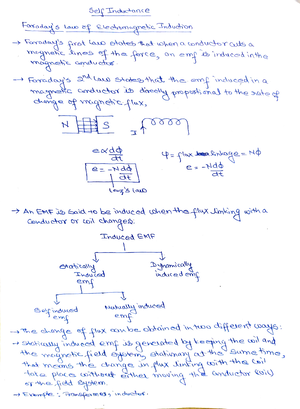 Self Inductance
Faraday's Law of Electromagnetic Induction
→ Faraday's first Law states that when a conductor cuts a
magnetic lines of the force, an emf is induced in the
magnetic conductor.
→ Faraday's 2nd Law states that the emf induced in a
magnetic conductor is directly proportional to the rate of
change of magnetic flux.
N S
e ∝ dφ/dt
ψ = flux linkage = Nφ
e = -N dφ/dt
e = -N dφ/dt
Lenz's Law
→ An EMF is said to be induced when the flux linking with a
conductor or coil changes.
Induced EMF
Statically Induced emf
Dynamically induced emf
Self induced emf
Mutually induced emf
→ The change of flux can be obtained in two different ways:
→ Statically induced emf is generated by keeping the coil and
the magnetic field system, stationary at the same time,
that means the change in flux linking with the coil
take place without either moving the conductor (coil)
or the field system
→ Example: Transformers, inductor.